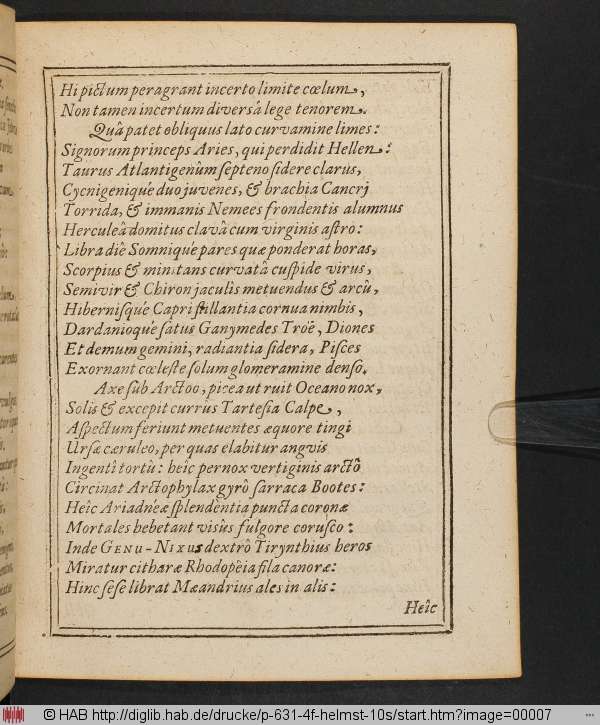 Hi pictum peragrant incerto limite cœlum,
Non tamen incertum diversâ lege tenorem.
Quâ patet obliquus lato curvamine limes:
Signorum princeps Aries, qui perdidit Hellen:
Taurus Atlantigenûm septeno sidere clarus,
Cycnigenique duo juvenes, & brachia Cancri
Torrida, & immanis Nemees frondentis alumnus
Herculeâ domitus clavâ cum virginis astro:
Libra diê Somnique pares quæ ponderat horas,
Scorpius & minitans curvatâ cuspide virus,
Semivir & Chiron jaculis metuendus & arcû,
Hibernisque Capri stillantia cornua nimbis,
Dardanioque satus Ganymedes Troë, Diones
Et demum gemini, radiantia sidera, Pisces
Exornant cœleste solum glomeramine denso.
Axe sub Arctoo, picea ut ruit Oceano nox,
Solis & excepit currus Tartesia Calpe,
Aspectum feriunt metuentes æquore tingi
Ursæ cæruleo, per quas elabitur anguis
Ingentî tortù: heic pernox vertiginis arctô
Circinat Arctophylax gyrô sarraca Bootes:
Heîc Ariadneæ splendentia puncta coronæ
Mortales hebetant visùs fulgore corusco:
Inde GENU-NIXUS dextrô Tirynthius heros
Miratur citharæ Rhodopëia fila canoræ:
Hinc sese librat Mæandrius ales in alis:
Heîc
© HAB http://diglib.hab.de/drucke/p-631-4f-helmst-10s/start.htm?image=00007